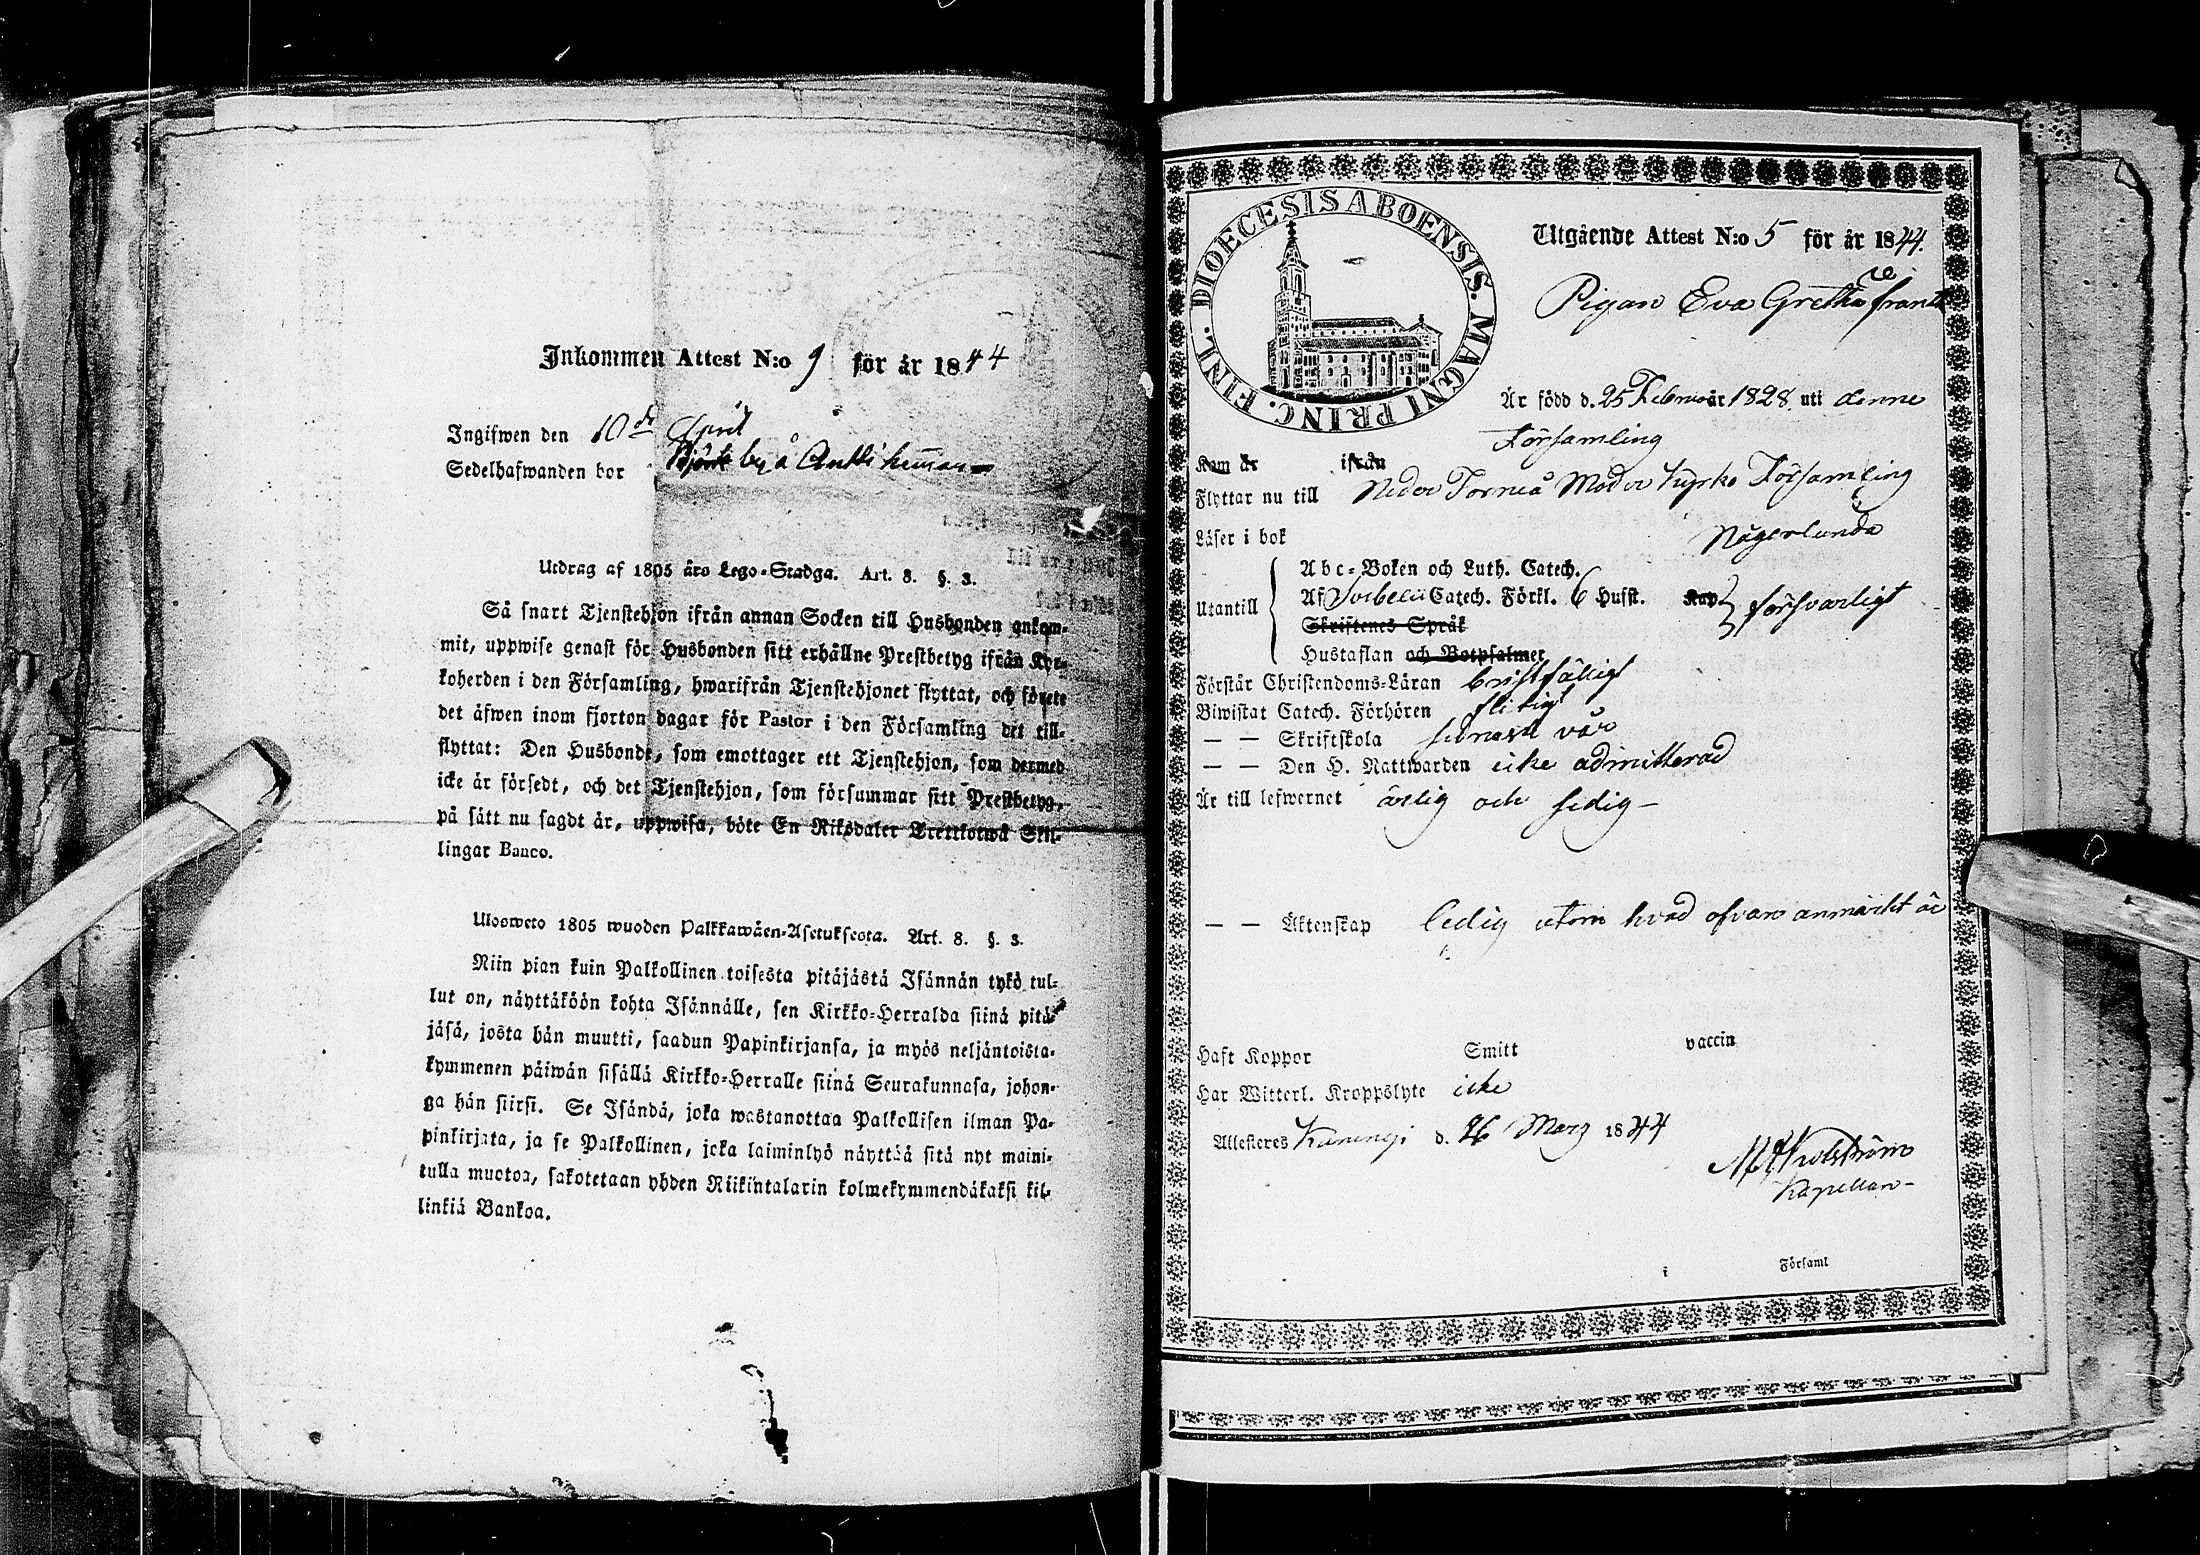 Inkommen Attest N:o 9 för år 1844
Ingifwen den 10de April
Sedelhafwanden bor Björk by å Antti hemman
Utdrag af 1805 års Lego-Stadga. Art. 8. §. 3.
Så snart Tjenstehjon ifrån annan Socken till Husbonden ankom-
mit, uppwise genast för Husbonden sitt erhållne Prestbetyg ifrån Kyr-
koherden i den Församling, hwarifrån Tjenstehjonet flyttat, och förete
det äfwen inom fjorton dagar för Pastor i den Församling det till-
flyttat: Den Husbonde, som emottager ett Tjenstehjon, som dermed
icke är försedt, och det Tjenstehjon, som försummar sitt Prestbetyg,
på sätt nu sagdt är, uppwisa, böte En Riksdaler Trettiotwå Skil-
lingar Banco.
Ulosweto 1805 wuoden Palkkawäen-Asetuksesta. Art. 8. §. 3.
Niin pian kuin Palkollinen toisesta pitäjästä Isännän tykö tul-
lut on, näyttäköön kohta Isännälle, sen Kirkko-Herralda siinä pitä-
jäsä, josta hän muutti, saadun Papinkirjansa, ja myös neljäntoista-
kymmenen päiwän sisällä Kirkko-Herralle siinä Seurakunnasa, johon-
ga hän siirsi. Se Isändä, joka wastanottaa Palkollisen ilman Pa-
pinkirjata, ja se Palkollinen, joka laiminlyö näyttää sitä nyt maini-
tulla muotoa, sakotetaan yhden Riikintalarin kolmekymmendäkaksi kil-
linkiä Bankoa.
DIOECESIS ABOENSIS. MAGNI PRINC. FINL.
Utgående Attest N:o 5 för år 1844.
Pigan Eva Gretha
Är född d. 25 Februari år 1828 uti denne
Församling
Kom år ifrån
Flyttar nu till Neder Torneå Moder kyrko Församling
Läser i bok
Abc-Boken och Luth. Catech.
Utantill Af Svebelii Catech. Förkl. 6 Husst. Kap försvarligt
Skriftenes Språk
Hustaflan och Botpsalmer
Förstår Christendoms-Läran bristfälligt
Biwistat Catech. Förhören flitigt
— — Skriftskola senast vår
— — Den H. Nattwarden icke admitterad
Är till lefwernet ärlig och sedig —
— — Äktenskap ledig utom hvad ofvan anmärkt är
Haft Koppor Smitt vaccin
Har Witterl. Kroppslyte icke
Attesteres Karungi d. 26 Marz 1844
Kapellan
i Församl